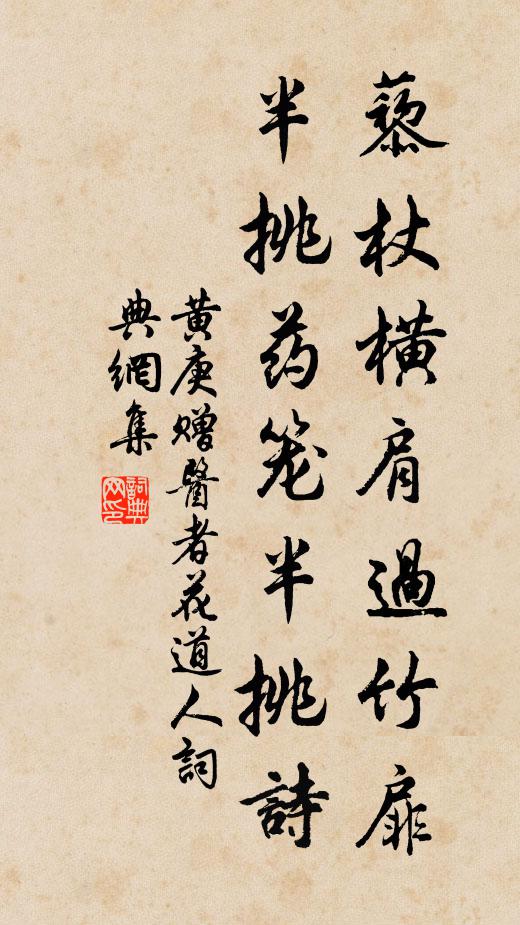 藜杖橫肩過竹扉
半挑药笼半挑詩
黄庚赠醫者花道人詞
典網集
詞典网印